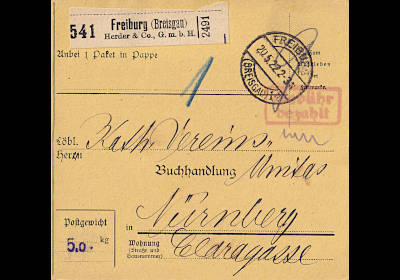 541 Freiburg (Breisgau)
Herder & Co., G. m. b. H. 2491
Anbei 1 Paket in Pappe
1
FREIBURG
20.5.22.2-3
(BREISGAU) 1
Gebühr
bezahlt
Löbl. Kath. Vereins-
Herrn
Buchhandlung Unitas
Nürnberg
in
Postgewicht
5.0 kg
Wohnung
(Straße und
Hausnummer)
Claragasse